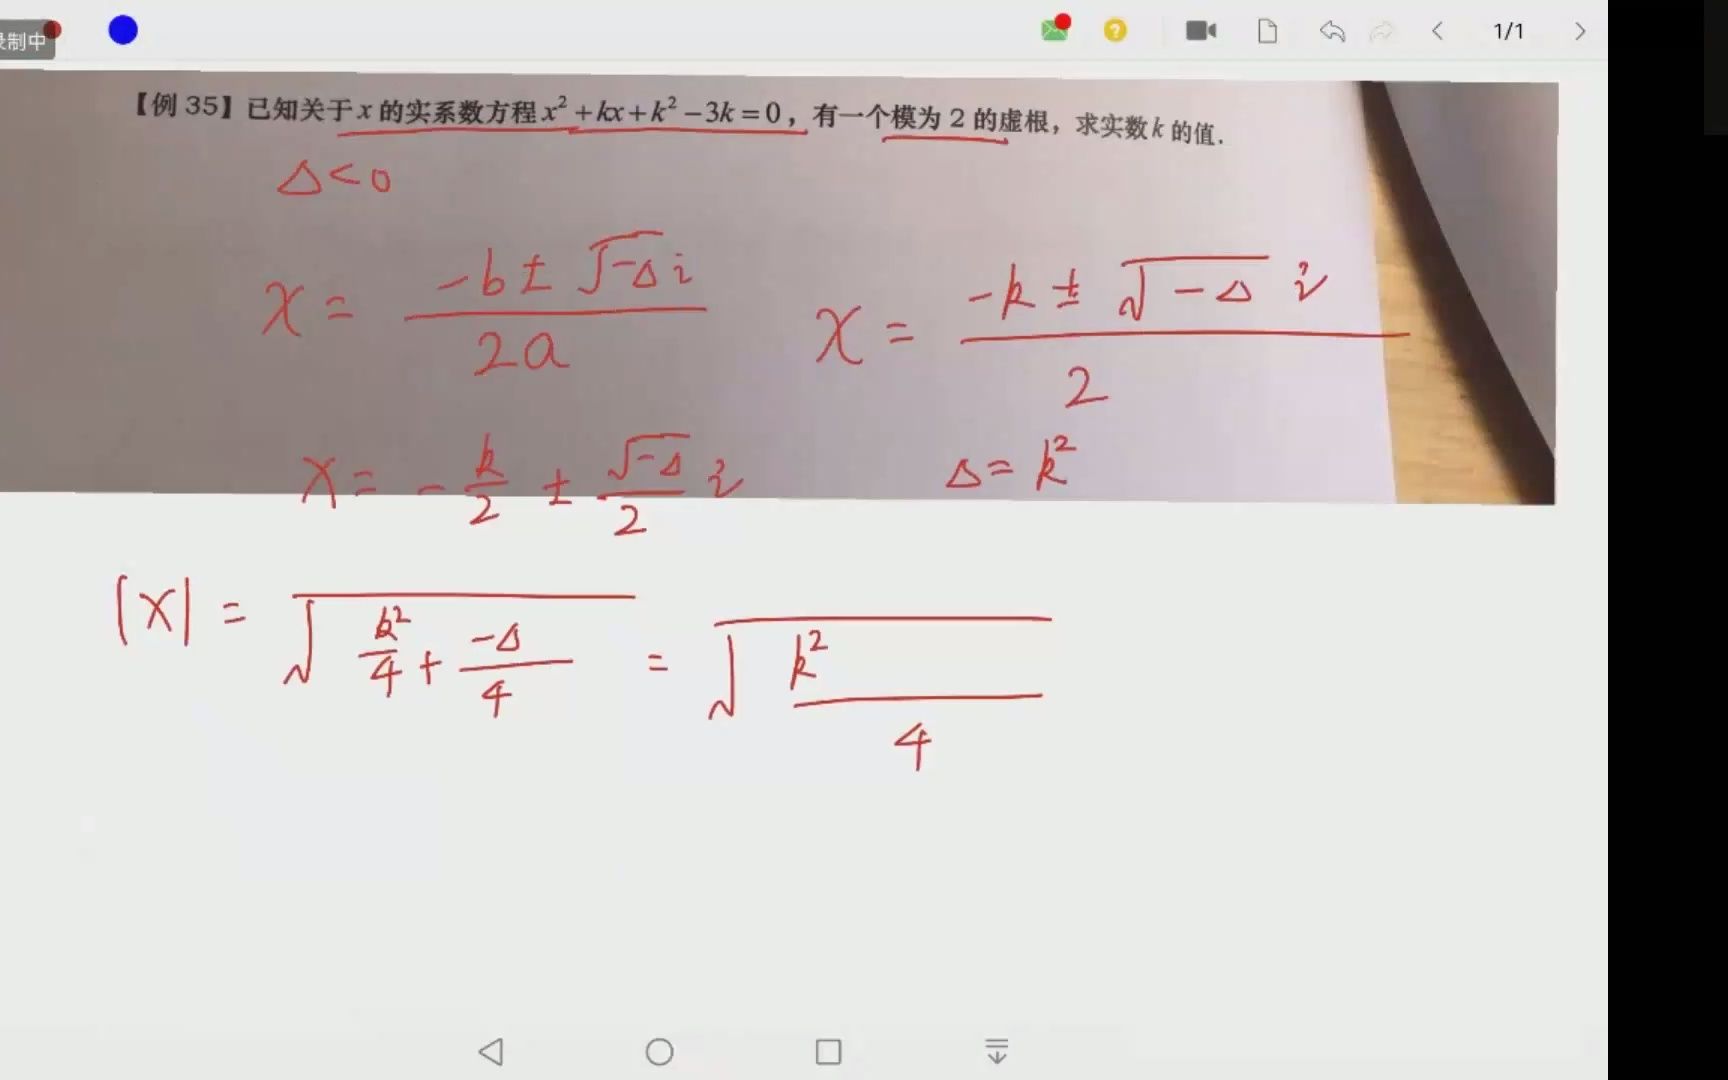 录制中
1/1
【例 35】已知关于 x 的实系数方程 x² + kx + k² − 3k = 0，有一个模为 2 的虚根，求实数 k 的值.
Δ<0
x = (-b ± √(-Δ) i) / 2a
x = (-k ± √(-Δ) i) / 2
x = - k/2 ± √(-Δ)/2 i
Δ = k²
|x| = √(k²/4 + -Δ/4) = √(k² / 4)